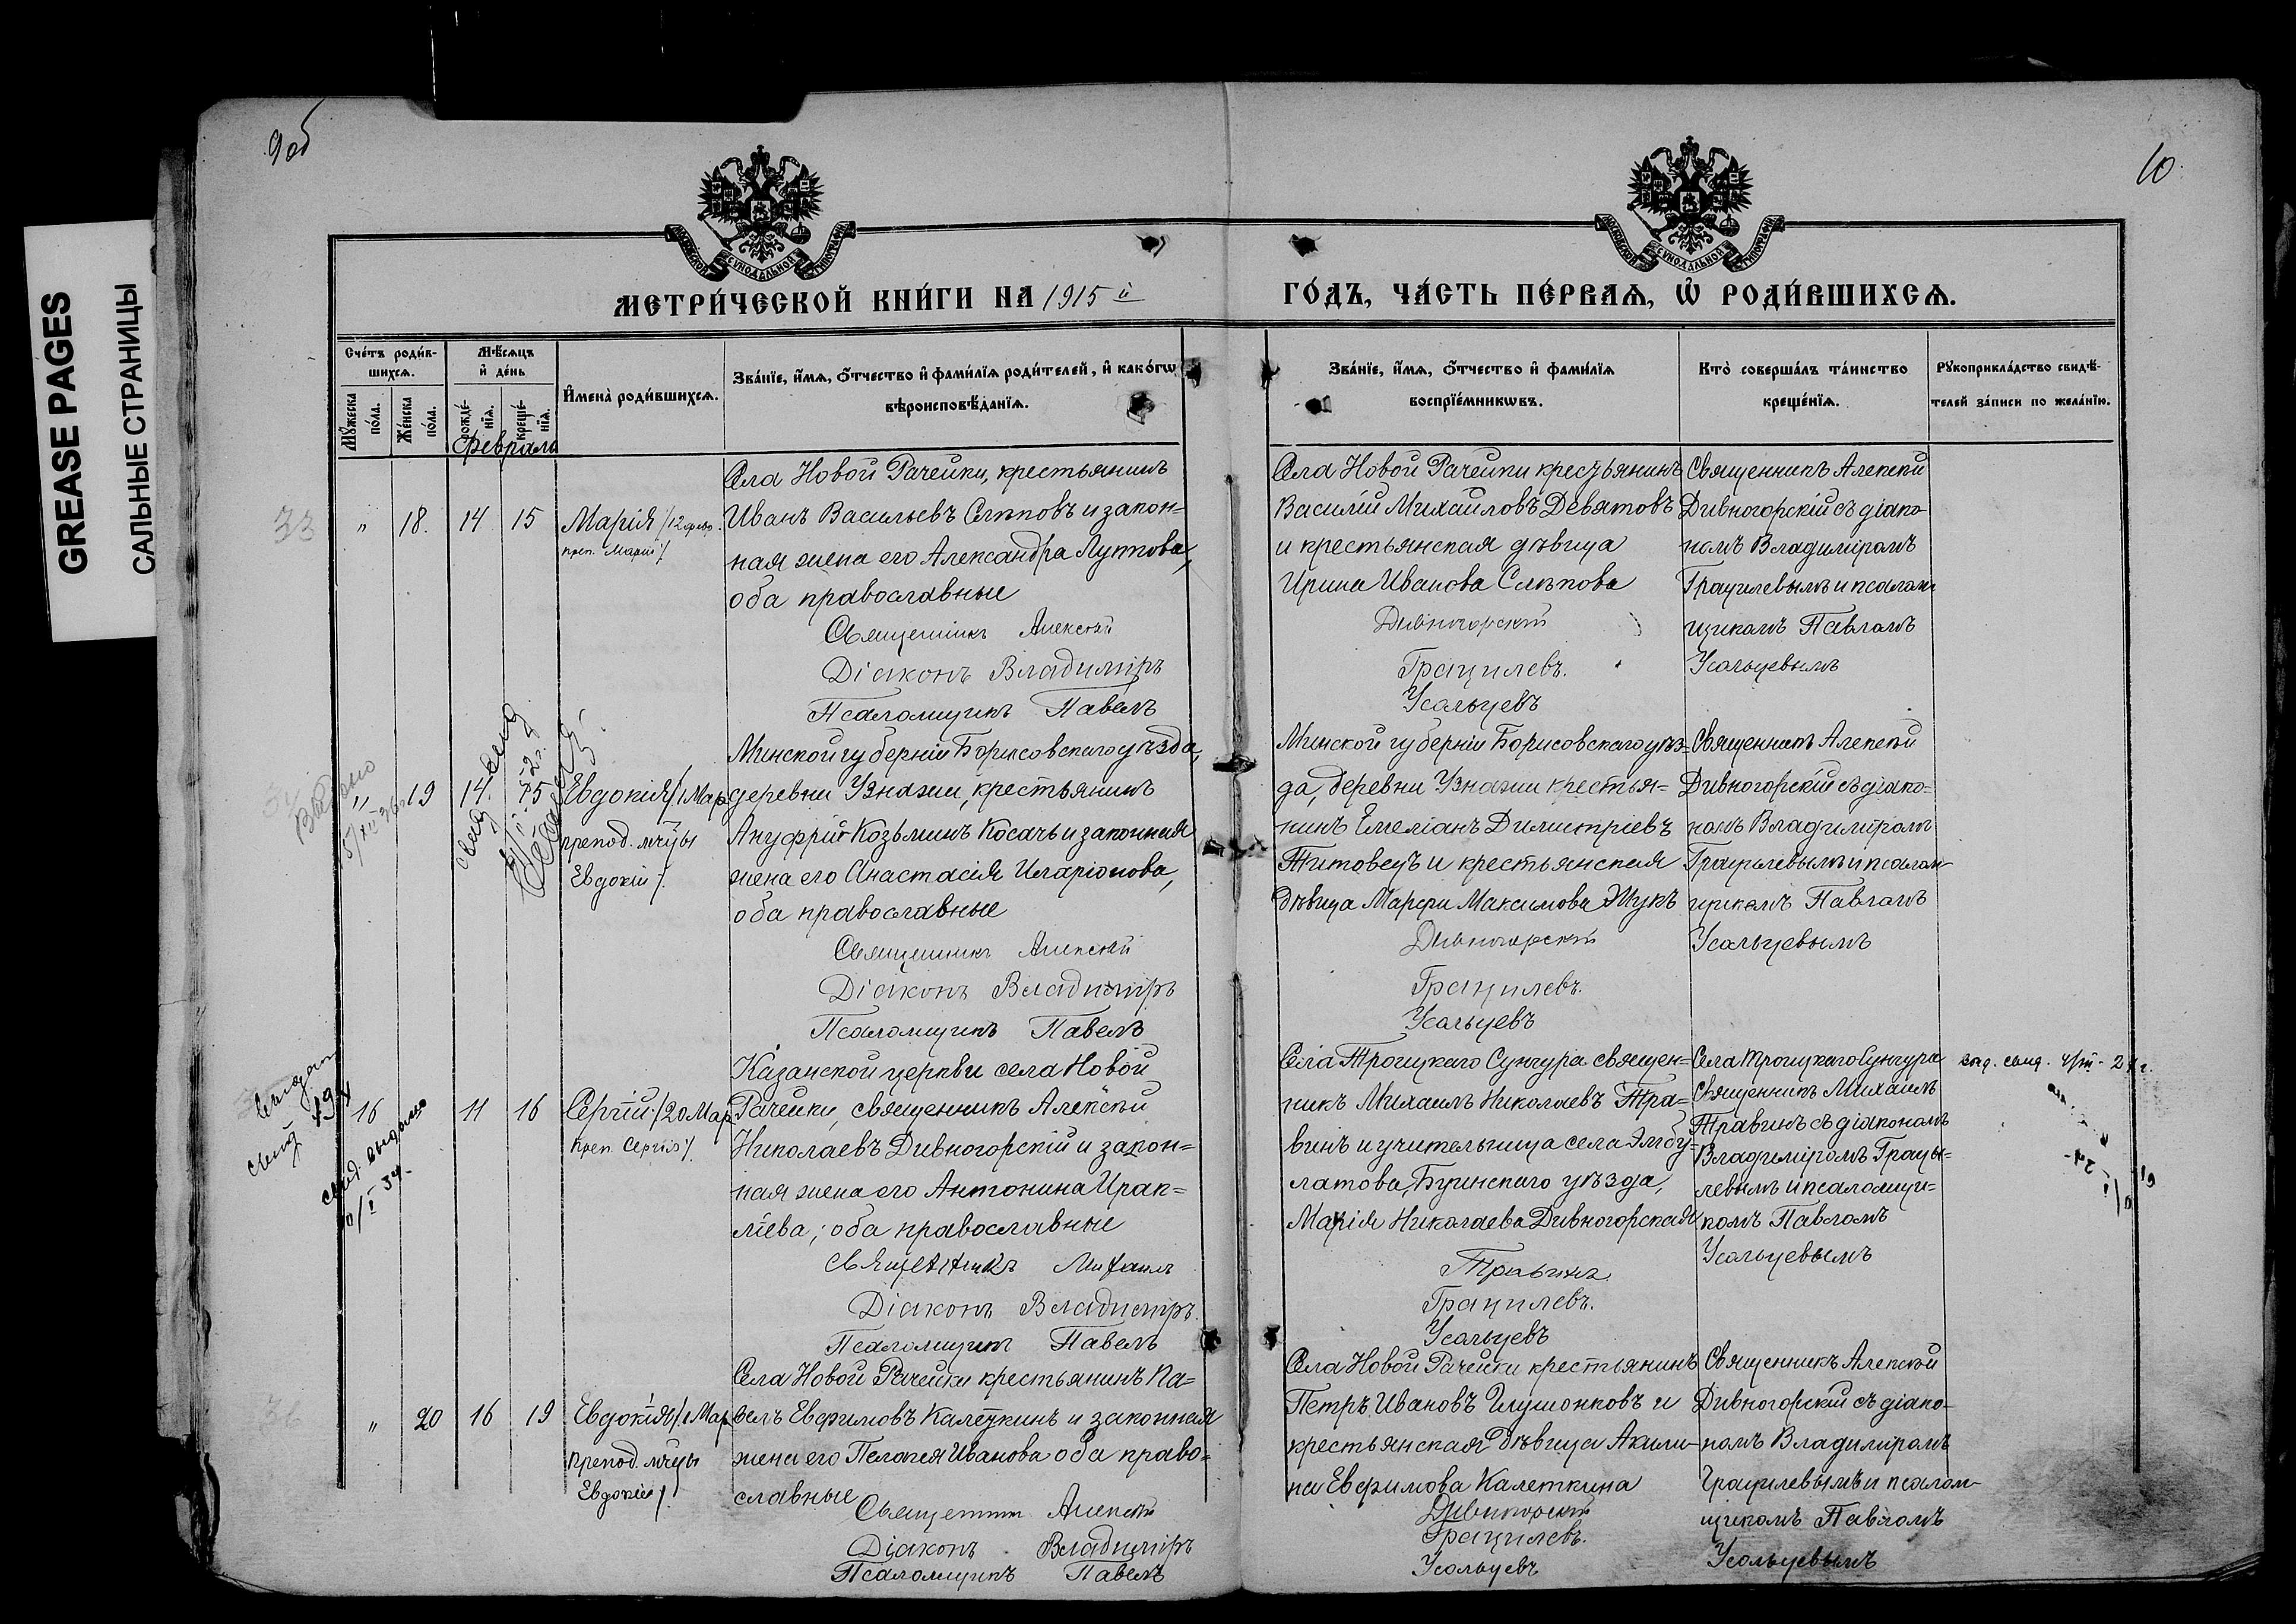 GREASE PAGES
САЛЬНЫЕ СТРАНИЦЫ
9об
10
МОСКОВСКОЙ СУНОДАЛЬНОЙ ТИПОГРАФІИ
МОСКОВСКОЙ СУНОДАЛЬНОЙ ТИПОГРАФІИ
МЕТРИ́ЧЕСКОЙ КНИ́ГИ НА 1915 й
ГО́ДЪ, ЧА́СТЬ ПЕ́РВАѦ, Ѡ҆ РОДИ́ВШИХСѦ.
Сче́тъ роди́в-
шихсѧ.
Мꙋ́жеска
по́ла.
Же́нска
по́ла.
Мѣ́сѧцъ
и҆ де́нь
рожде́-
нїѧ.
креще́-
нїѧ.
И҆мена̀ роди́вшихсѧ.
Зва́нїе, и҆́мѧ, ѻ҆́тчество и҆ фами́лїѧ роди́телей, и҆ како́гѡ
вѣроисповѣ́данїѧ.
Зва́нїе, и҆́мѧ, ѻ҆́тчество и҆ фами́лїѧ
воспрїе́мникѡвъ.
Кто̀ соверша́лъ та́инство
креще́нїѧ.
Рꙋкоприкла́дство свидѣ́-
телей за́писи по жела́нїю.
Февраль
33
" 18. 14 15
Марія /12 февр.
преп. Маріи/.
Села Новой Рачейки, крестьянинъ
Иванъ Васильевъ Слѣповъ и закон=
ная жена его Александра Луппова,
оба православные
Священникъ Алексій
Діаконъ Владиміръ
Псаломщикъ Павелъ
Села Новой Рачейки крестьянинъ
Василій Михайловъ Девятовъ
и крестьянская дѣвица
Ирина Иванова Слѣпова
Дивногорскій
Грацилевъ.
Усольцевъ
Священникъ Алексій
Дивногорскій съ діако-
номъ Владиміромъ
Грацилевымъ и псалом-
щикомъ Павломъ
Усольцевымъ
" 19 14. 15
Евдокія /1 Мар.
препод. мчцы
Евдокіи/.
Минской губерніи Борисовскаго уѣзда,
деревни Узнажи, крестьянинъ
Ануфрій Козьминъ Косачъ и законная
жена его Анастасія Иларіонова,
оба православные
Священникъ Алексій
Діаконъ Владиміръ
Псаломщикъ Павелъ
Минской губерніи Борисовскаго уѣз=
да, деревни Узнажи крестья=
нинъ Емеліанъ Димитріевъ
Титовецъ и крестьянская
дѣвица Марфа Максимова Жукъ
Дивногорскій
Грацилевъ.
Усольцевъ
Священникъ Алексій
Дивногорскій съ діако=
номъ Владиміромъ
Грацилевымъ и псалом-
щикомъ Павломъ
Усольцевымъ
свид. выдано
16 11 16
Сергій /20 Мар.
преп. Сергія/.
Казанской церкви села Новой
Рачейки, священникъ Алексѣй
Николаевъ Дивногорскій и закон=
ная жена его Антонина Ирак=
ліева; оба православные
Священникъ Михаилъ
Діаконъ Владиміръ.
Псаломщикъ Павелъ
Села Троицкаго Сунгура священ=
никъ Михаилъ Николаевъ Тра=
винъ и учительница села Элбу=
латова, Буинскаго уѣзда,
Марія Николаева Дивногорская
Травинъ
Грацилевъ.
Усольцевъ
Села Троицкаго Сунгура
Священникъ Михаилъ
Травинъ съ діакономъ
Владиміромъ Граци=
левымъ и псаломщи=
комъ Павломъ
Усольцевымъ
36
" 20 16 19
Евдокія /1 Мар.
препод. мчцы
Евдокіи/.
Села Новой Рачейки крестьянинъ Па=
велъ Евфимовъ Калеткинъ и законная
жена его Пелагея Иванова оба право=
славные
Священникъ Алексій
Діаконъ Владиміръ
Псаломщикъ Павелъ
Села Новой Рачейки крестьянинъ
Петръ Ивановъ Глушонковъ и
крестьянская дѣвица Акили-
на Евфимова Калеткина
Дивногорскій
Грацилевъ.
Усольцевъ
Священникъ Алексій
Дивногорскій съ діако-
номъ Владиміромъ
Грацилевымъ и псалом-
щикомъ Павломъ
Усольцевымъ